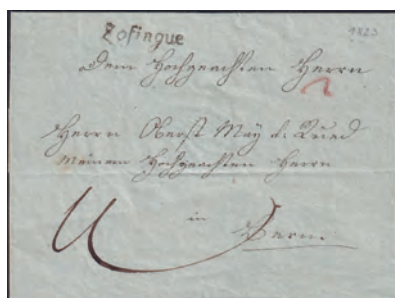 Zofingue
1823
Dem Hochgeachten Herrn
Herrn Oberst May v. Rued
Meinem Hochgeachten Herrn
in
Bern.